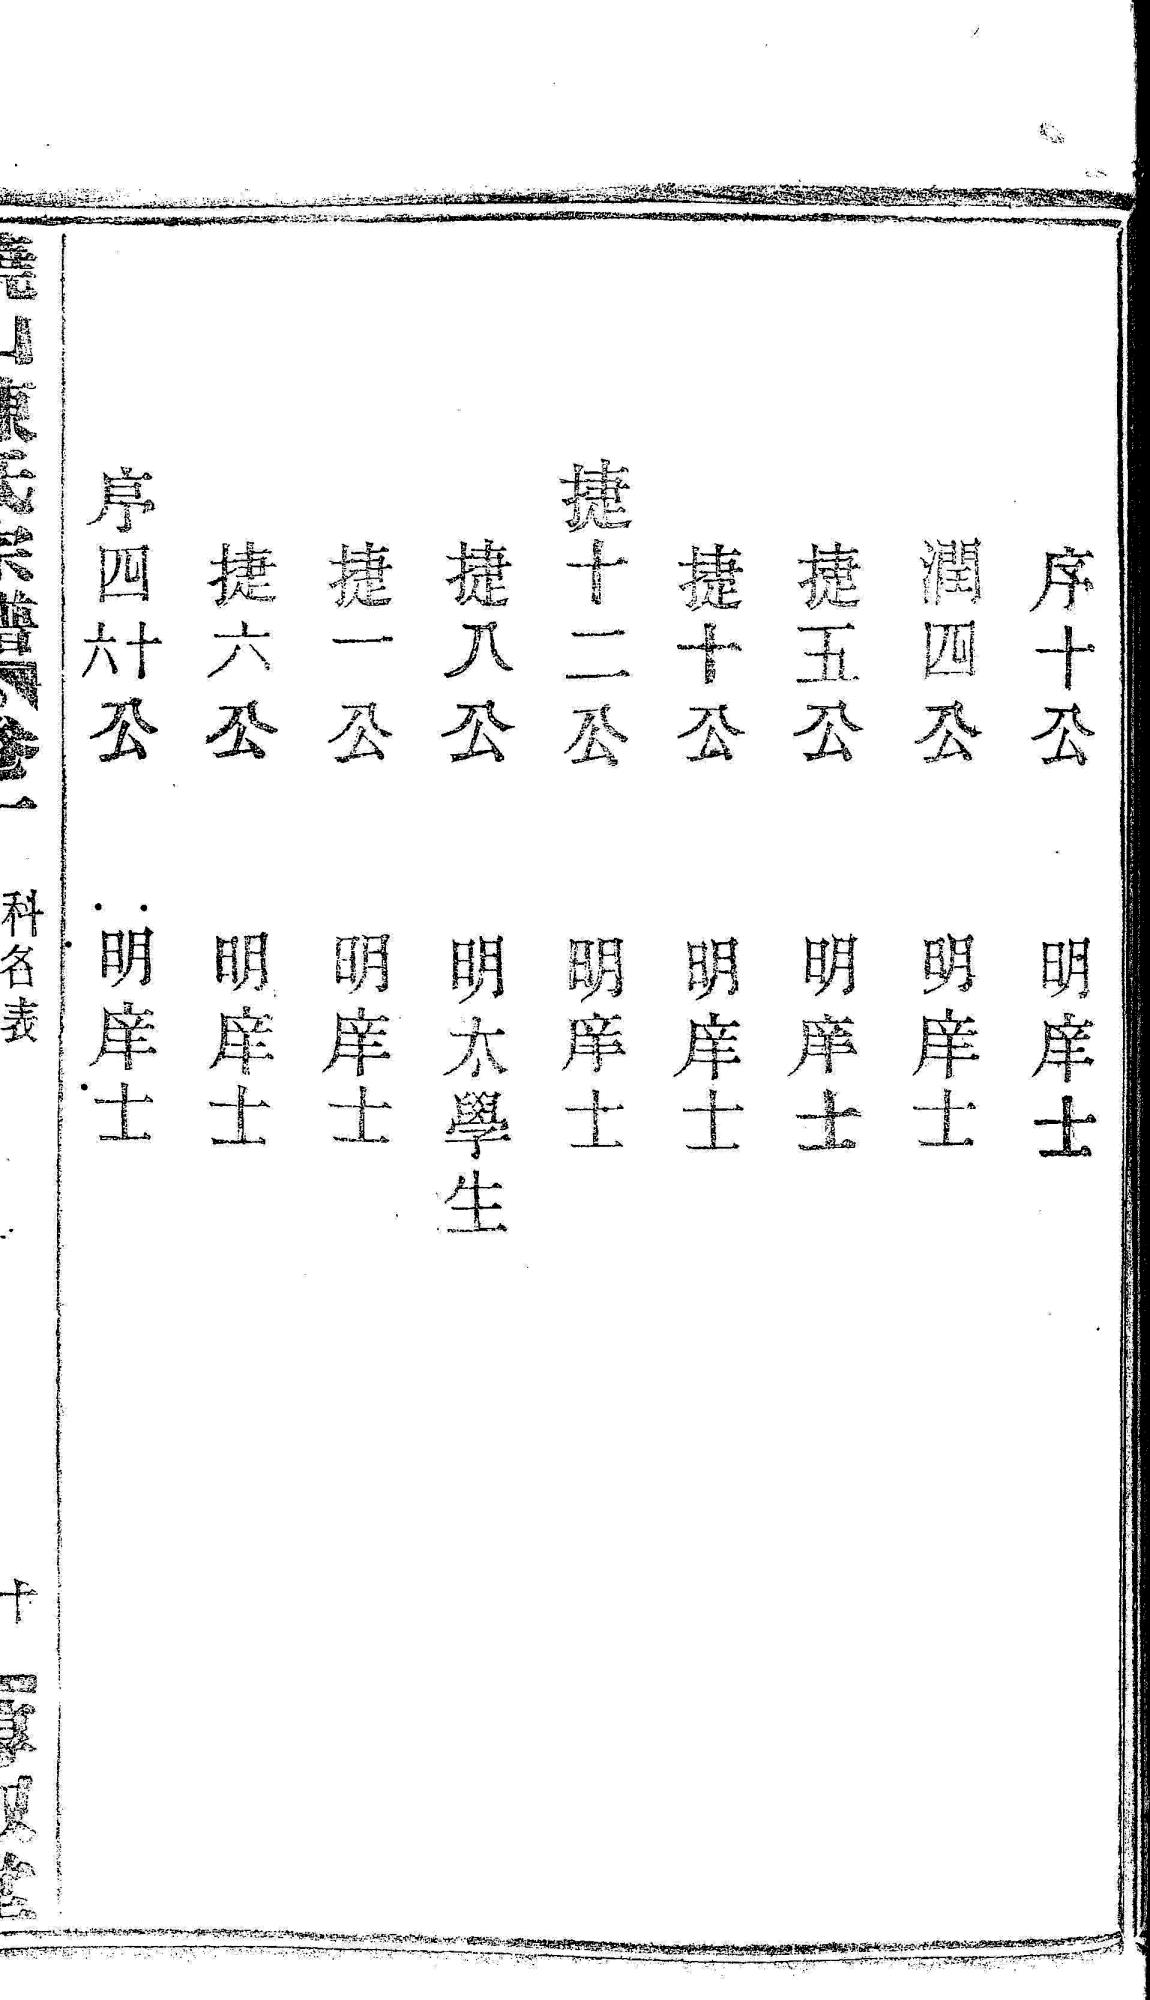 序十公 明庠士
潤四公 明庠士
捷五公 明庠士
捷十公 明庠士
捷十二公 明庠士
捷八公 明太學生
捷一公 明庠士
捷六公 明庠士
序四十六公 明庠士
山陳氏宗譜 卷一 科名表 十